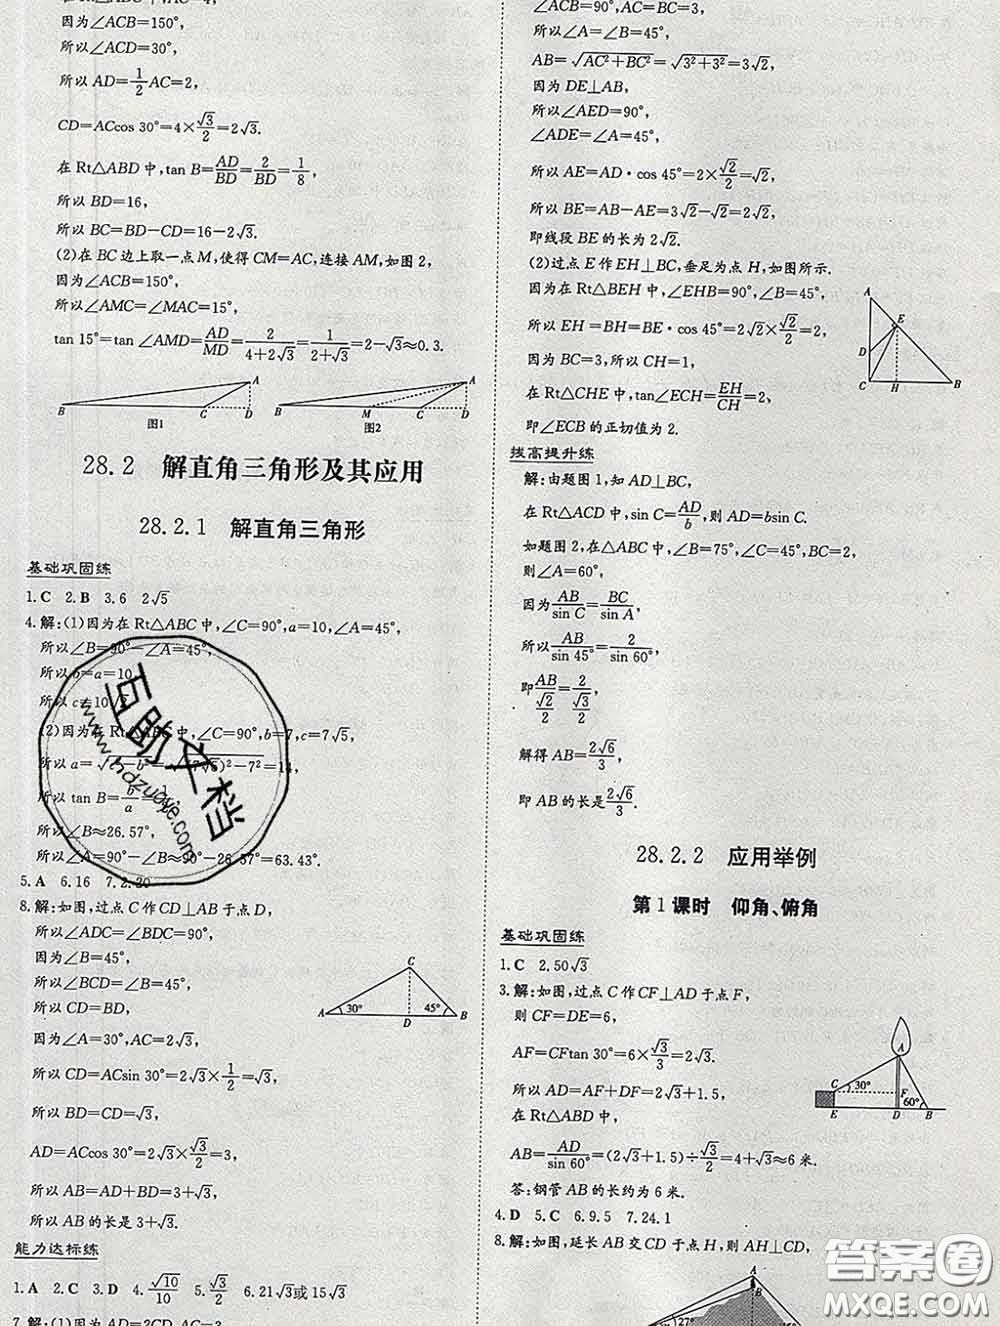 因为∠ACB=150°,
所以∠ACD=30°,
所以 AD=1/2 AC=2,
CD=ACcos 30°=4×√3/2=2√3.
在 Rt△ABD 中,tan B=AD/BD=2/BD=1/8,
所以 BD=16,
所以 BC=BD-CD=16-2√3.
(2)在 BC 边上取一点 M,使得 CM=AC,连接 AM,如图 2,
因为∠ACB=150°,
所以∠AMC=∠MAC=15°,
tan 15°=tan ∠AMD=AD/MD=2/(4+2√3)=1/(2+√3)=2-√3≈0.3.
A
B
C
D
图1
A
B
M
C
D
图2
28.2 解直角三角形及其应用
28.2.1 解直角三角形
基础巩固练
1.C 2.B 3.6 2√5
4.解:(1)因为在 Rt△ABC 中,∠C=90°,a=10,∠A=45°,
所以∠B=90°-∠A=45°,
所以 b=a=10,
所以 c=10√2.
(2)因为在 Rt△ABC 中,∠C=90°,b=7,c=7√5,
所以 a=
²-7²=14,
所以 tan B=b/a=
所以∠B≈26.57°,
所以∠A=90°-∠B≈90°-26.57°=63.43°.
5.A 6.16 7.2.20
8.解:如图,过点 C 作 CD⊥AB 于点 D,
所以∠ADC=∠BDC=90°,
因为∠B=45°,
所以∠BCD=∠B=45°,
所以 CD=BD,
因为∠A=30°,AC=2√3,
所以 CD=ACsin 30°=2√3×1/2=√3,
所以 BD=CD=√3,
AD=ACcos 30°=2√3×√3/2=3,
所以 AB=AD+BD=3+√3,
所以 AB 的长是 3+√3.
C
30°
45°
A
D
B
能力达标练
1.A 2.C 3.D 4.√10/10 5.√3/2 6.21√3或15√3
7.解:(1)因为 AD=2CD,AC=3,
互助文档
www.hdzuoye.com
∠ACB=90°,AC=BC=3,
所以∠A=∠B=45°,
AB=√(AC²+BC²)=√(3²+3²)=3√2,
因为 DE⊥AB,
所以∠AED=90°,
∠ADE=∠A=45°,
所以 AE=AD·cos 45°=2×√2/2=√2,
所以 BE=AB-AE=3√2-√2=2√2,
即线段 BE 的长为 2√2.
(2)过点 E 作 EH⊥BC,垂足为点 H,如图所示.
因为在 Rt△BEH 中,∠EHB=90°,∠B=45°,
所以 EH=BH=BE·cos 45°=2√2×√2/2=2,
因为 BC=3,所以 CH=1,
在 Rt△CHE 中,tan∠ECH=EH/CH=2,
即∠ECB 的正切值为 2.
A
E
D
C
H
B
拔高提升练
解:由题图 1,知 AD⊥BC,
在 Rt△ACD 中,sin C=AD/b,则 AD=bsin C.
如题图 2,在△ABC 中,∠B=75°,∠C=45°,BC=2,
则∠A=60°,
因为AB/sin C=BC/sin A,
所以AB/sin 45°=2/sin 60°,
即AB/(√2/2)=2/(√3/2),
解得 AB=2√6/3,
即 AB 的长是2√6/3.
28.2.2 应用举例
第 1 课时 仰角、俯角
基础巩固练
1.C 2.50√3
3.解:如图,过点 C 作 CF⊥AD 于点 F,
则 CF=DE=6,
AF=CFtan 30°=6×√3/3=2√3,
所以 AD=AF+DF=2√3+1.5,
在 Rt△ABD 中,
AB=AD/sin 60°=(2√3+1.5)÷√3/2=4+√3≈6 米.
答:钢管 AB 的长约为 6 米.
A
C
30°
F
60°
E
D
B
4.D 5.C 6.9.5 7.24.1
8.解:如图,延长 AB 交 CD 于点 H,则 AH⊥CD,
A
B
27°
答案圈
MXQE.COM